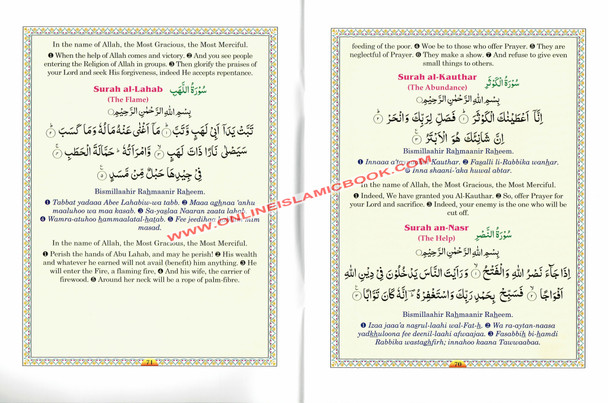 feeding of the poor. ❹ Woe be to those who offer Prayer. ❺ They are
neglectful of Prayer. ❻ They make a show. ❼ And refuse to give even
small things to others.
Surah al-Kauthar سُوْرَةُ الْكَوْثَرِ
(The Abundance)
بِسْمِ اللهِ الرَّحْمٰنِ الرَّحِيْمِ
إِنَّآ أَعْطَيْنٰكَ الْكَوْثَرَ ۝١ فَصَلِّ لِرَبِّكَ وَانْحَرْ ۝٢
إِنَّ شَانِئَكَ هُوَ الْأَبْتَرُ ۝٣
Bismillaahir Raḥmaanir Raḥeem.
❶ Innaaa Kauthar. ❷ Faṣalli li-Rabbika wanḥar.
❸ inna shaani-'aka huwal abtar.
In the name of Allah, the Most Gracious, the Most Merciful.
❶ Indeed, We have granted you Al-Kauthar. ❷ So, offer Prayer for
your Lord and sacrifice. ❸ Indeed, your enemy is the one who will be
cut off.
Surah an-Nasr سُوْرَةُ النَّصْرِ
(The Help)
بِسْمِ اللهِ الرَّحْمٰنِ الرَّحِيْمِ
إِذَا جَآءَ نَصْرُ اللهِ وَالْفَتْحُ ۝١ وَرَأَيْتَ النَّاسَ يَدْخُلُوْنَ فِيْ دِيْنِ اللهِ
أَفْوَاجًا ۝٢ فَسَبِّحْ بِحَمْدِ رَبِّكَ وَاسْتَغْفِرْهُ ؕ إِنَّهٗ كَانَ تَوَّابًا ۝٣
Bismillaahir Raḥmaanir Raḥeem.
❶ Izaa jaaa'a naṣrul-laahi wal-Fat-ḥ. ❷ Wa ra-aytan-naasa
yadkhuloona fee deenil-laahi afwaajaa. ❸ Fasabbiḥ bi-ḥamdi
Rabbika wastaghfirh; innahoo kaana Tawwaabaa.
70
In the name of Allah, the Most Gracious, the Most Merciful.
❶ When the help of Allah comes and victory. ❷ And you see people
entering the Religion of Allah in groups. ❸ Then glorify the praises of
your Lord and seek His forgiveness, indeed He accepts repentance.
Surah al-Lahab سُوْرَةُ اللَّهَبِ
(The Flame)
بِسْمِ اللهِ الرَّحْمٰنِ الرَّحِيْمِ
تَبَّتْ يَدَآ أَبِيْ لَهَبٍ وَّتَبَّ ۝١ مَآ أَغْنٰى عَنْهُ مَالُهٗ وَمَا كَسَبَ ۝٢
سَيَصْلٰى نَارًا ذَاتَ لَهَبٍ ۝٣ وَّامْرَأَتُهٗ ؕ حَمَّالَةَ الْحَطَبِ ۝٤
فِيْ جِيْدِهَا حَبْلٌ مِّنْ مَّسَدٍ ۝٥
Bismillaahir Raḥmaanir Raḥeem.
❶ Tabbat yadaaa Abee Lahabiw-wa tabb. ❷ Maaa aghnaa 'anhu
maaluhoo wa maa kasab. ❸ Sa-yaṣlaa Naaran zaata lahab.
❹ Wamra-atuhoo ḥammaalatal-ḥaṭab. ❺ Fee jeedihaa
masad.
In the name of Allah, the Most Gracious, the Most Merciful.
❶ Perish the hands of Abu Lahab, and may he perish! ❷ His wealth
and whatever he earned will not avail (benefit) him anything. ❸ He
will enter the Fire, a flaming fire, ❹ And his wife, the carrier of
firewood. ❺ Around her neck will be a rope of palm-fibre.
71
WWW.ONLINEISLAMICBOOK.COM